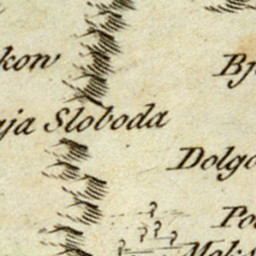 kow
Bj
aja Sloboda
Dolgo
Po
Moks